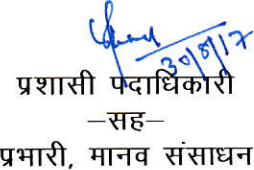 30/8/17
प्रशासी पदाधिकारी
–सह–
प्रभारी, मानव संसाधन